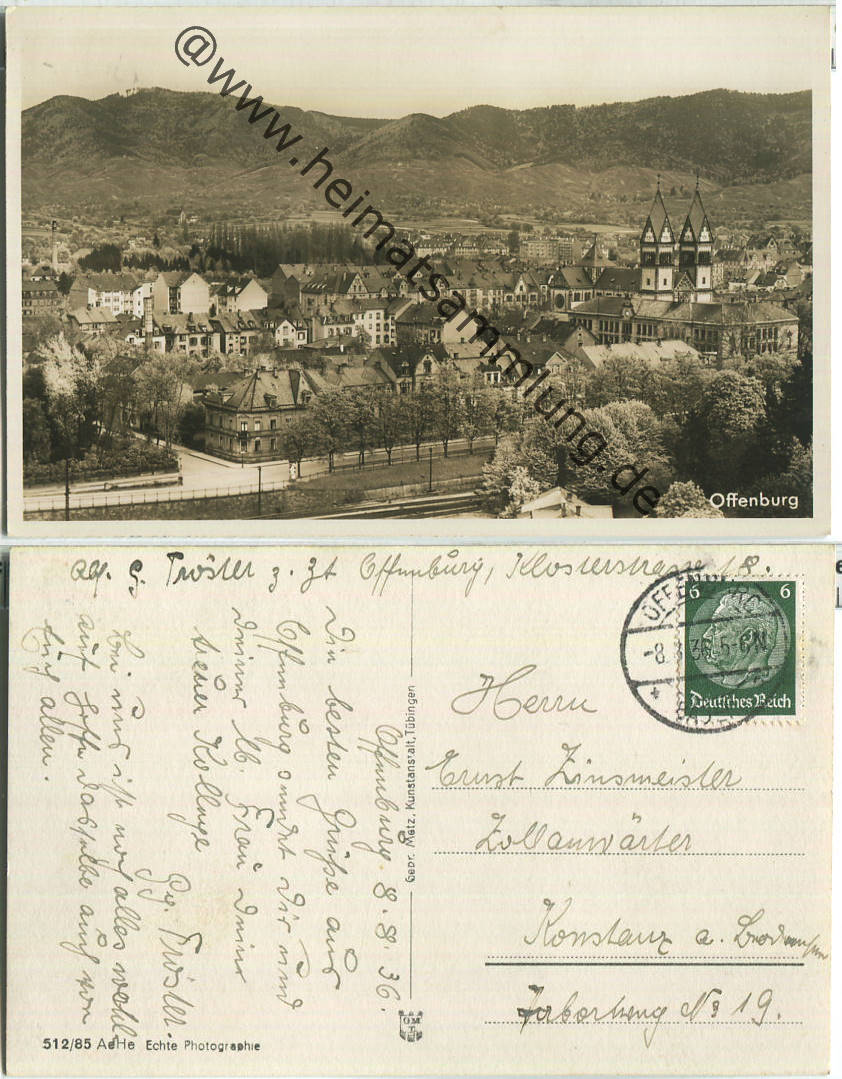 @www.heimatsammlung.de
Offenburg
G. Tröster z. Zt Offenburg, Klosterstrasse 18.
OFFENBURG
-8.8.36.5-6N
6 6
Deutsches Reich
Offenburg. 8.8.36.
Die besten Grüße aus
Offenburg sendet Dir und
Deiner lb. Frau Deine
treuer Kollege
Pg. Tröster.
bei uns ist noch alles wohl
auf hoffe dasselbe auch von
Euch allen.
Gebr. Metz, Kunstanstalt, Tübingen
Herrn
Ernst Zinsmeister
Zollanwärter
Konstanz a. Bodensee
No 19.
512/85 AeHe Echte Photographie